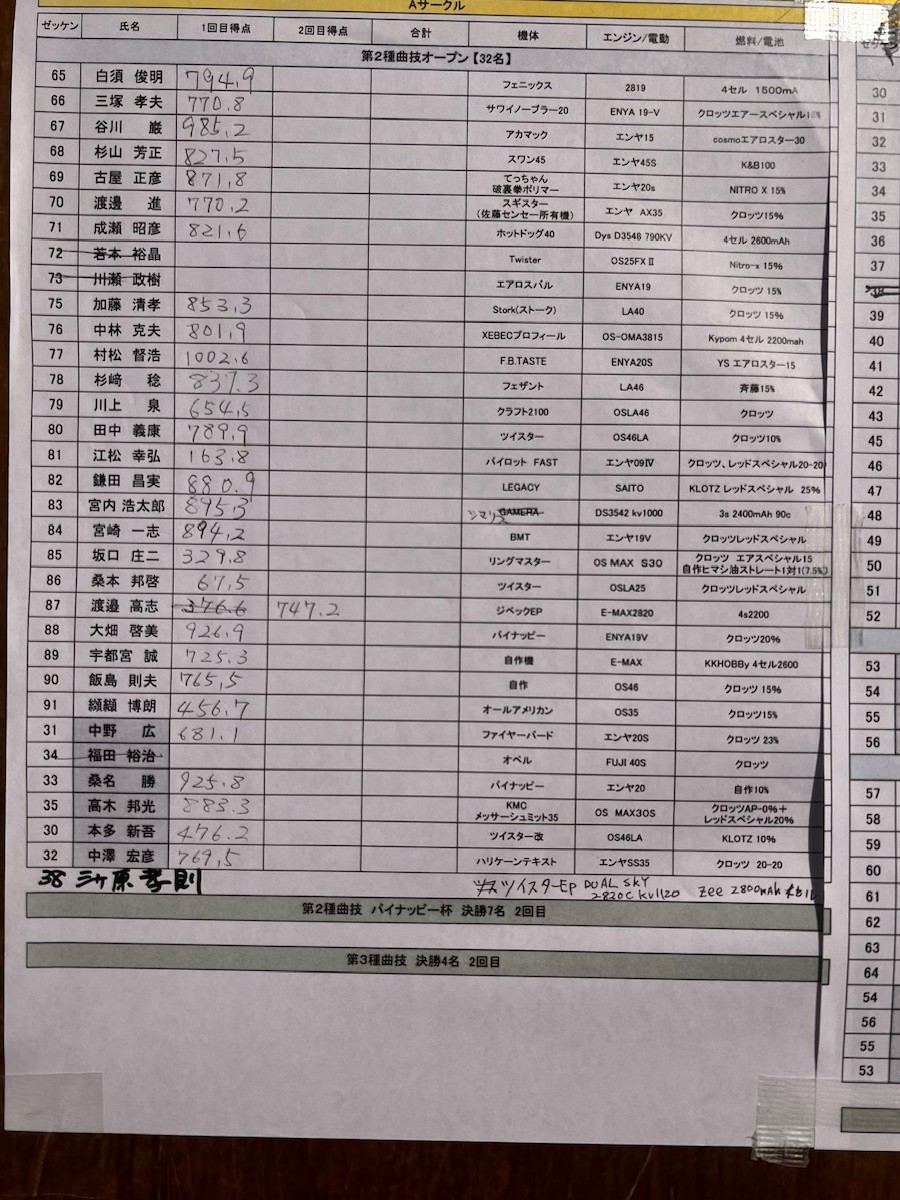 Aサークル
ゼッケン 氏名 1回目得点 2回目得点 合計 機体 エンジン/電動 燃料/電池
第2種曲技オープン【32名】
65 白須 俊明 794.9 フェニックス 2819 4セル 1500mA
66 三塚 孝夫 770.8 サワイノーブラー20 ENYA 19-V クロッツエアースペシャル18%
67 谷川 巌 985.2 アカマック エンヤ15 cosmoエアロスター30
68 杉山 芳正 827.5 スワン45 エンヤ45S K&B100
69 古屋 正彦 871.8 てっちゃん 破裏拳ポリマー エンヤ20s NITRO X 15%
70 渡邊 進 770.2 スギスター (佐藤センセー所有機) エンヤ AX35 クロッツ15%
71 成瀬 昭彦 821.6 ホットドッグ40 Dys D3548 790KV 4セル 2600mAh
72 若本 裕晶 Twister OS25FXⅡ Nitro-x 15%
73 川瀬 政樹 エアロスバル ENYA19 クロッツ 15%
75 加藤 清孝 853.3 Stork(ストーク) LA40 クロッツ 15%
76 中林 克夫 801.9 XEBECプロフィール OS-OMA3815 Kypom 4セル 2200mah
77 村松 督浩 1002.6 F.B.TASTE ENYA20S YS エアロスター15
78 杉﨑 稔 837.3 フェザント LA46 斉藤15%
79 川上 泉 654.5 クラフト2100 OSLA46 クロッツ
80 田中 義康 789.9 ツイスター OS46LA クロッツ10%
81 江松 幸弘 163.8 パイロット FAST エンヤ09Ⅳ クロッツ、レッドスペシャル20-20
82 鎌田 昌実 880.9 LEGACY SAITO KLOTZ レッドスペシャル 25%
83 宮内 浩太郎 895.3 シマリス GAMERA DS3542 kv1000 3s 2400mAh 90c
84 宮崎 一志 894.2 BMT エンヤ19V クロッツレッドスペシャル
85 坂口 庄二 329.8 リングマスター OS MAX S30 クロッツ エアスペシャル15 自作ヒマシ油ストレート1対1(7.5%)
86 桑本 邦啓 67.5 ツイスター OSLA25 クロッツレッドスペシャル
87 渡邉 高志 376.6 747.2 ジベックEP E-MAX2820 4s2200
88 大畑 啓美 926.9 パイナッピー ENYA19V クロッツ20%
89 宇都宮 誠 725.3 自作機 E-MAX KKHOBBy 4セル2600
90 飯島 則夫 765.5 自作 OS46 クロッツ 15%
91 纐纈 博朗 456.7 オールアメリカン OS35 クロッツ15%
31 中野 広 681.1 ファイヤーバード エンヤ20S クロッツ 23%
34 福田 裕治 オペル FUJI 40S クロッツ
33 桑名 勝 925.8 パイナッピー エンヤ20 自作10%
35 高木 邦光 883.3 KMC メッサーシュミット35 OS MAX30S クロッツAP-0%+ レッドスペシャル20%
30 本多 新吾 476.2 ツイスター改 OS46LA KLOTZ 10%
32 中澤 宏彦 769.5 ハリケーンテキスト エンヤSS35 クロッツ 20-20
38 三ヶ原 孝則 ツイスターEp DUAL SKY 2820C kv1120 Zee 2800mAh
第2種曲技 パイナッピー杯 決勝7名 2回目
第3種曲技 決勝4名 2回目
ゼッケン
30
31
32
33
34
35
36
37
38
39
40
41
42
43
45
46
47
48
49
50
51
52
53
54
55
56
57
58
59
60
61
62
63
64
54
56
55
53